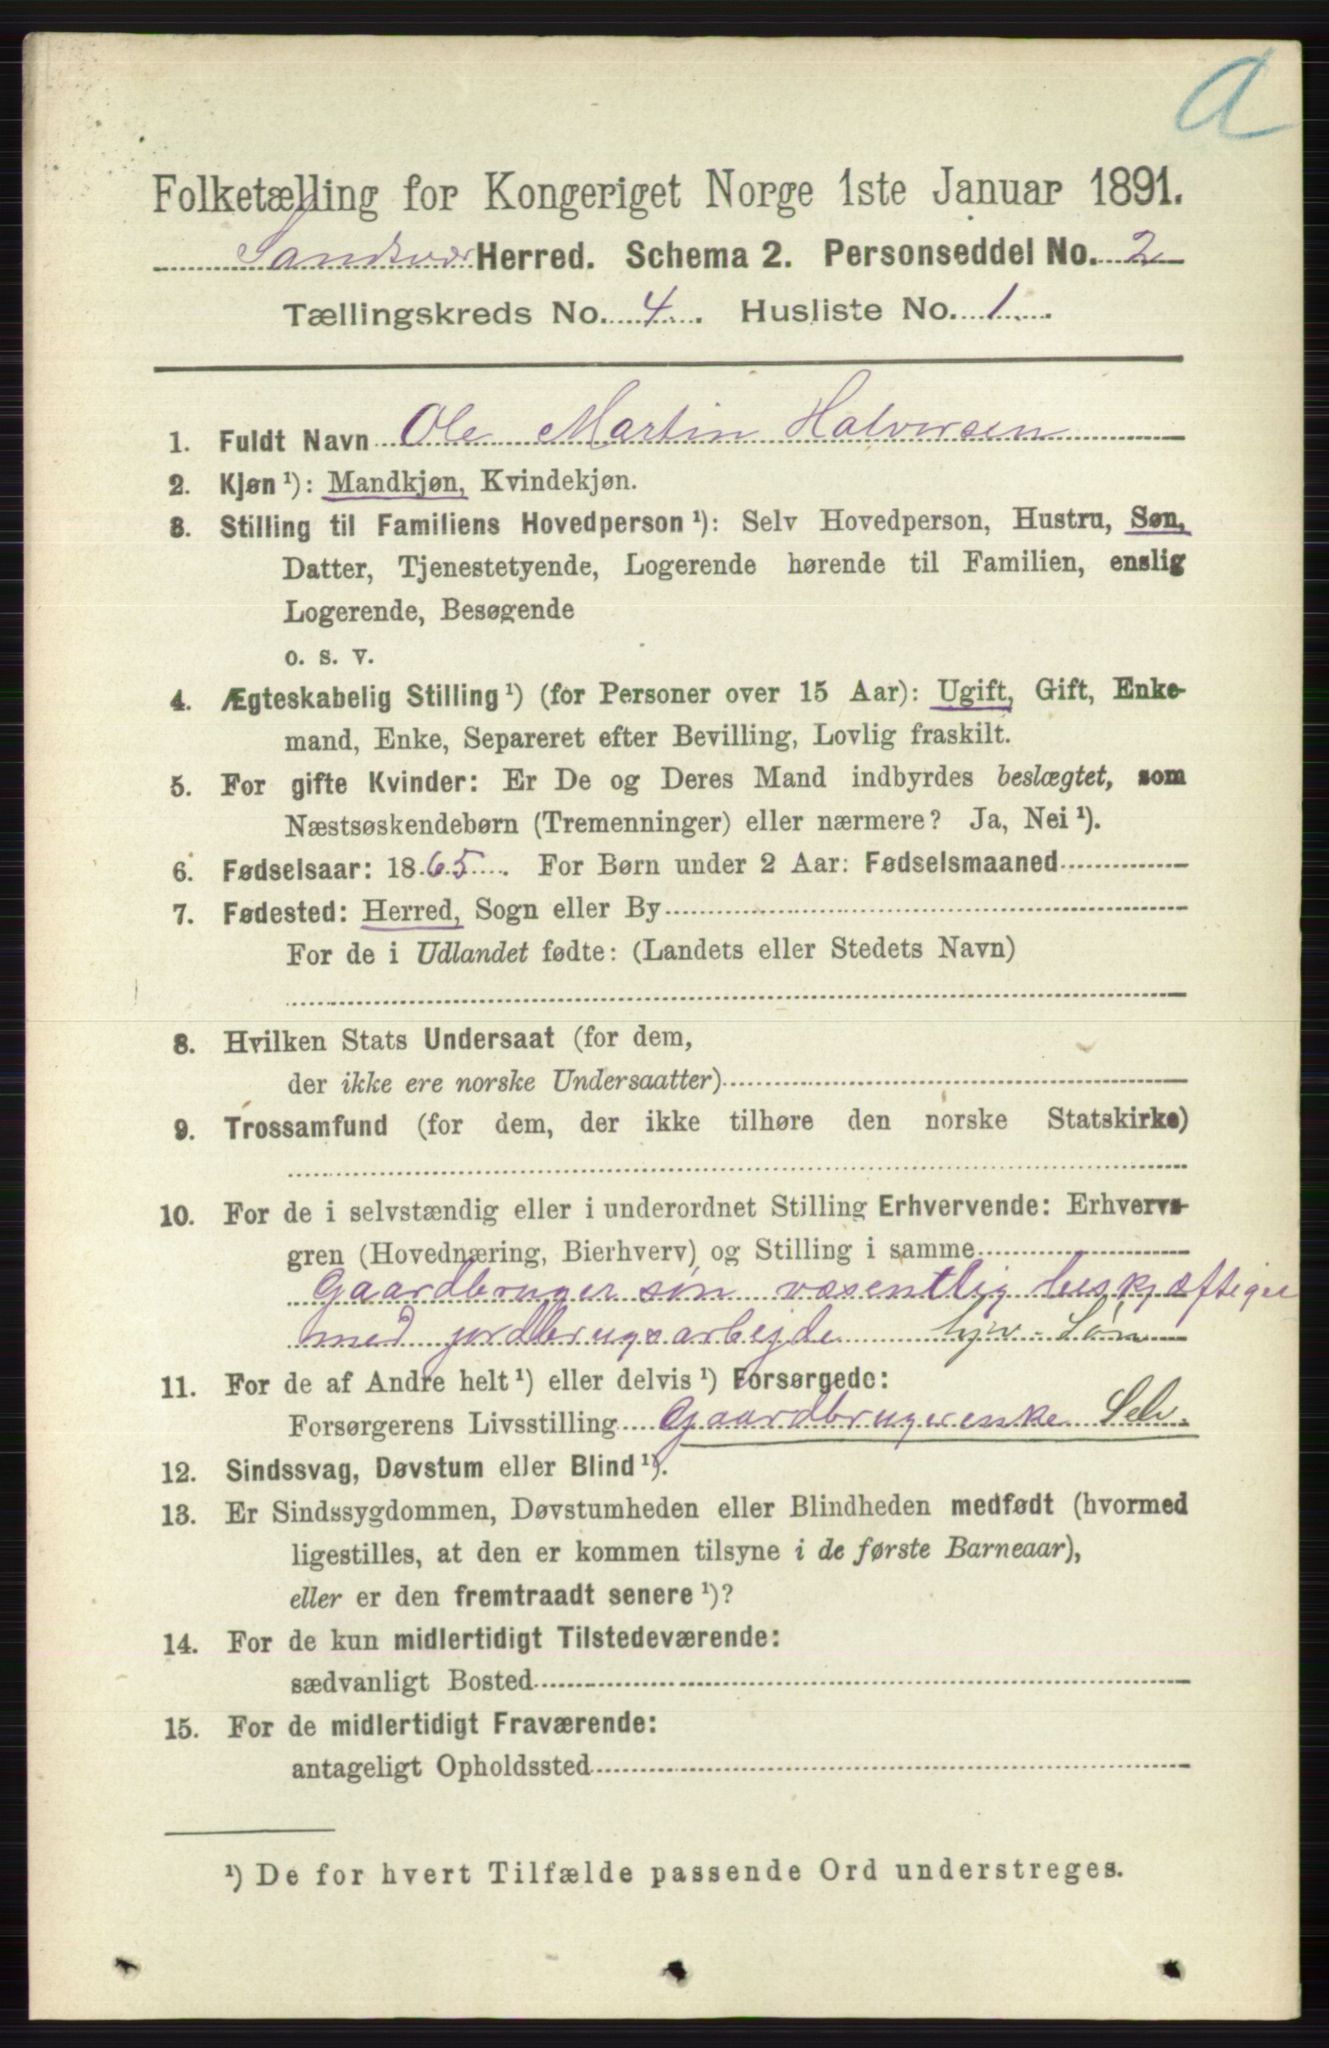 A
Folketælling for Kongeriget Norge 1ste Januar 1891.
Sandsvær Herred. Schema 2. Personseddel No. 2
Tællingskreds No. 4. Husliste No. 1.
1. Fuldt Navn Ole Martin Halvorsen
2. Kjøn ¹): Mandkjøn, Kvindekjøn.
3. Stilling til Familiens Hovedperson ¹): Selv Hovedperson, Hustru, Søn,
Datter, Tjenestetyende, Logerende hørende til Familien, enslig
Logerende, Besøgende
o. s. v.
4. Ægteskabelig Stilling ¹) (for Personer over 15 Aar): Ugift, Gift, Enke-
mand, Enke, Separeret efter Bevilling, Lovlig fraskilt.
5. For gifte Kvinder: Er De og Deres Mand indbyrdes beslægtet, som
Næstsøskendebørn (Tremenninger) eller nærmere? Ja, Nei ¹).
6. Fødselsaar: 1865. For Børn under 2 Aar: Fødselsmaaned
7. Fødested: Herred, Sogn eller By
For de i Udlandet fødte: (Landets eller Stedets Navn)
8. Hvilken Stats Undersaat (for dem,
der ikke ere norske Undersaatter)
9. Trossamfund (for dem, der ikke tilhøre den norske Statskirke)
10. For de i selvstændig eller i underordnet Stilling Erhvervende: Erhvervs-
gren (Hovednæring, Bierhverv) og Stilling i samme
Gaardbruger søn væsentlig beskjæftiget
med jordbrugsarbejde hjv. Søn
11. For de af Andre helt ¹) eller delvis ¹) Forsørgede:
Forsørgerens Livsstilling Gaardbrugerenke Selv.
12. Sindssvag, Døvstum eller Blind ¹).
13. Er Sindssygdommen, Døvstumheden eller Blindheden medfødt (hvormed
ligestilles, at den er kommen tilsyne i de første Barneaar),
eller er den fremtraadt senere ¹)?
14. For de kun midlertidigt Tilstedeværende:
sædvanligt Bosted
15. For de midlertidigt Fraværende:
antageligt Opholdssted
¹) De for hvert Tilfælde passende Ord understreges.